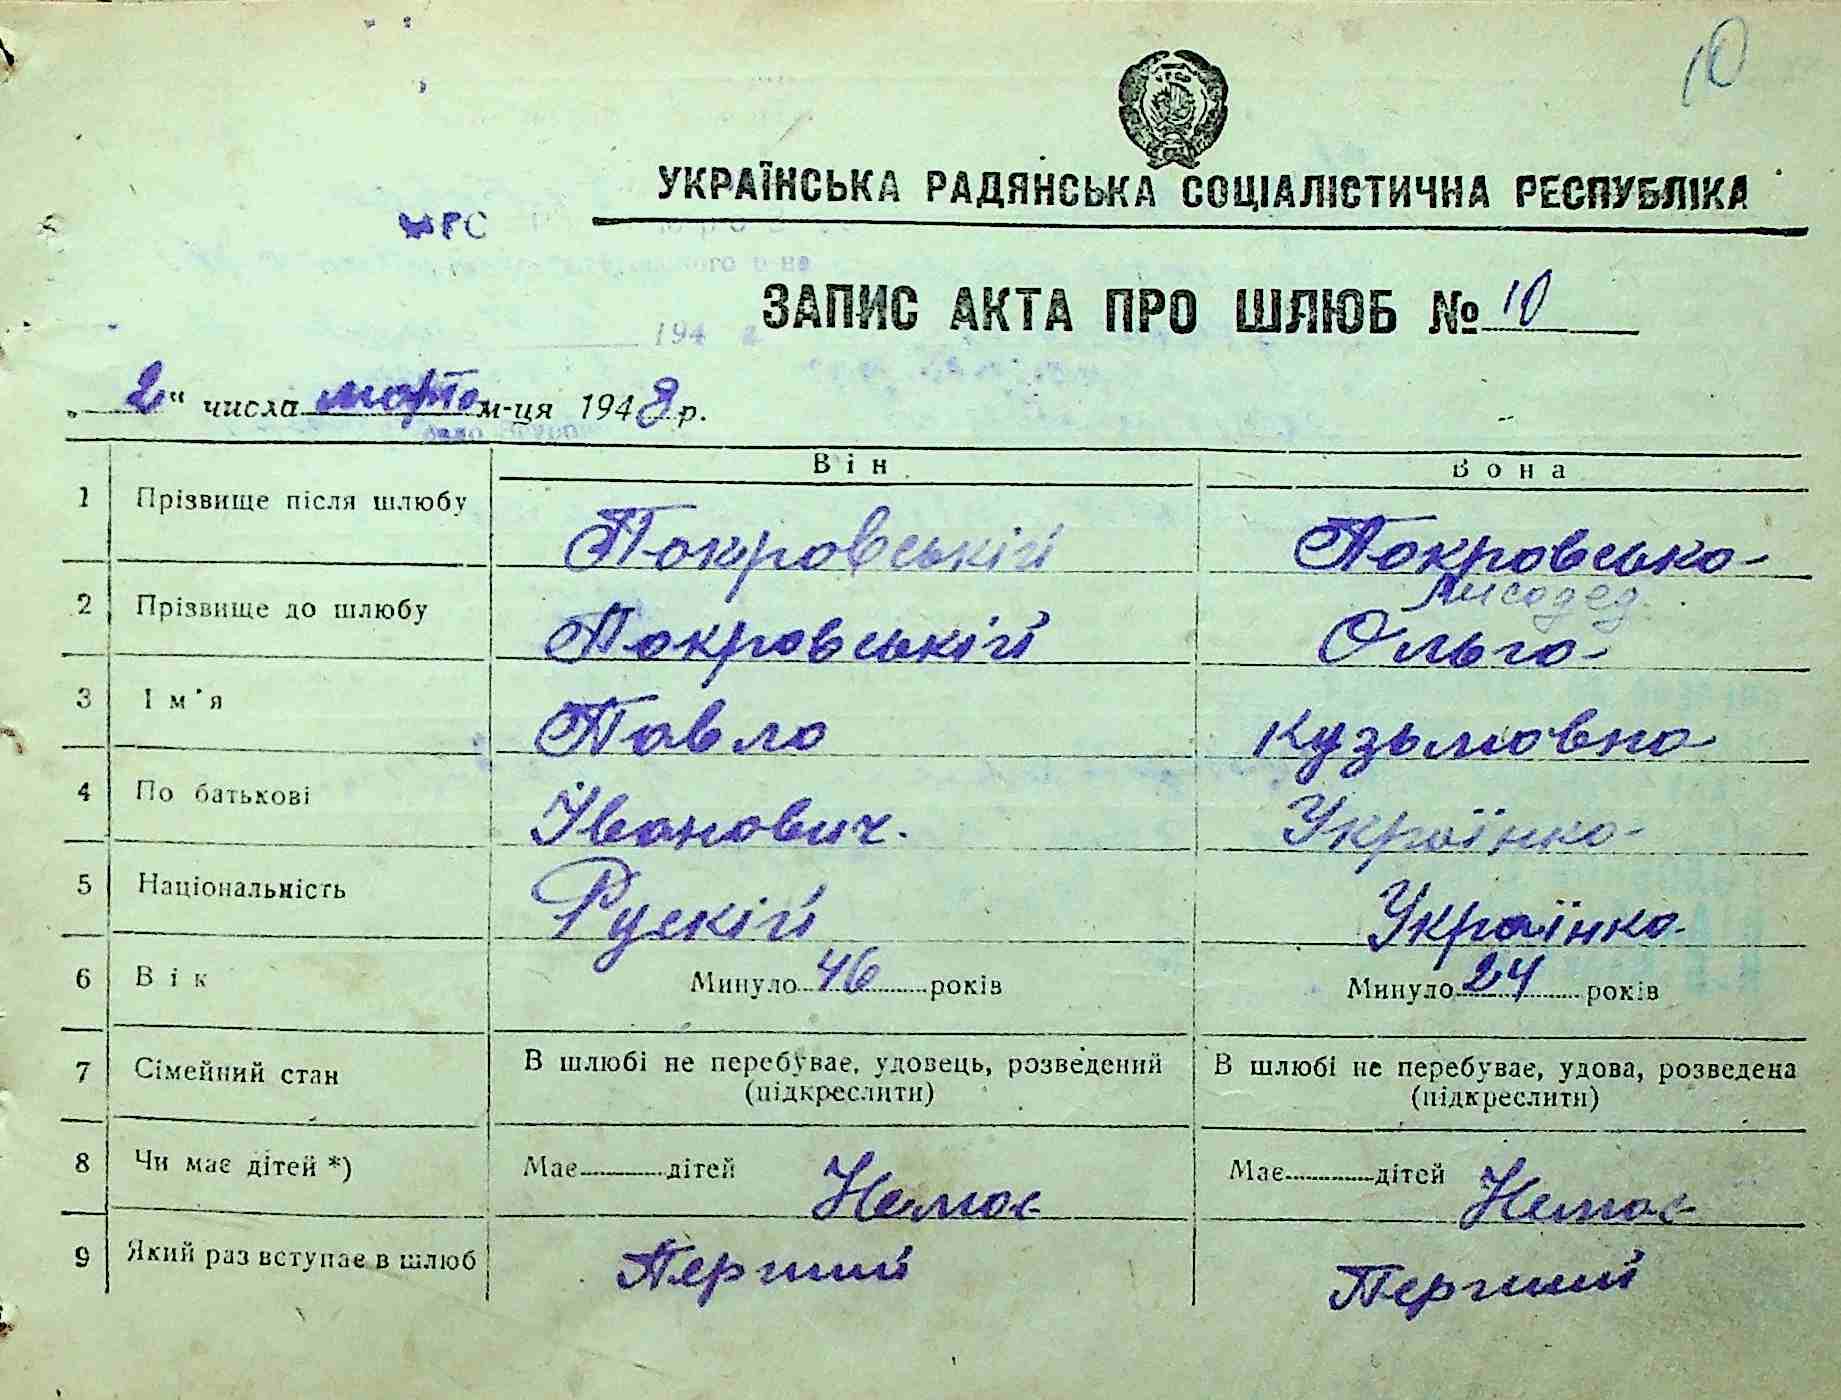 10
УКРАЇНСЬКА РАДЯНСЬКА СОЦІАЛІСТИЧНА РЕСПУБЛІКА
ЗАПИС АКТА ПРО ШЛЮБ № 10
„2" числа марта м-ця 1948 р.
Він Вона
1 Прізвище після шлюбу Покровській Покровська
Лисодед
2 Прізвище до шлюбу Покровській Ольга
3 Ім'я Павло Кузьмовна
4 По батькові Іванович. Українка
5 Національність Рускій Українка
6 Вік Минуло 46 років Минуло 24 років
7 Сімейний стан В шлюбі не перебуває, удовець, розведений (підкреслити) В шлюбі не перебуває, удова, розведена (підкреслити)
8 Чи має дітей *) Має дітей Немає Має дітей Немає
9 Який раз вступає в шлюб Перший Перший